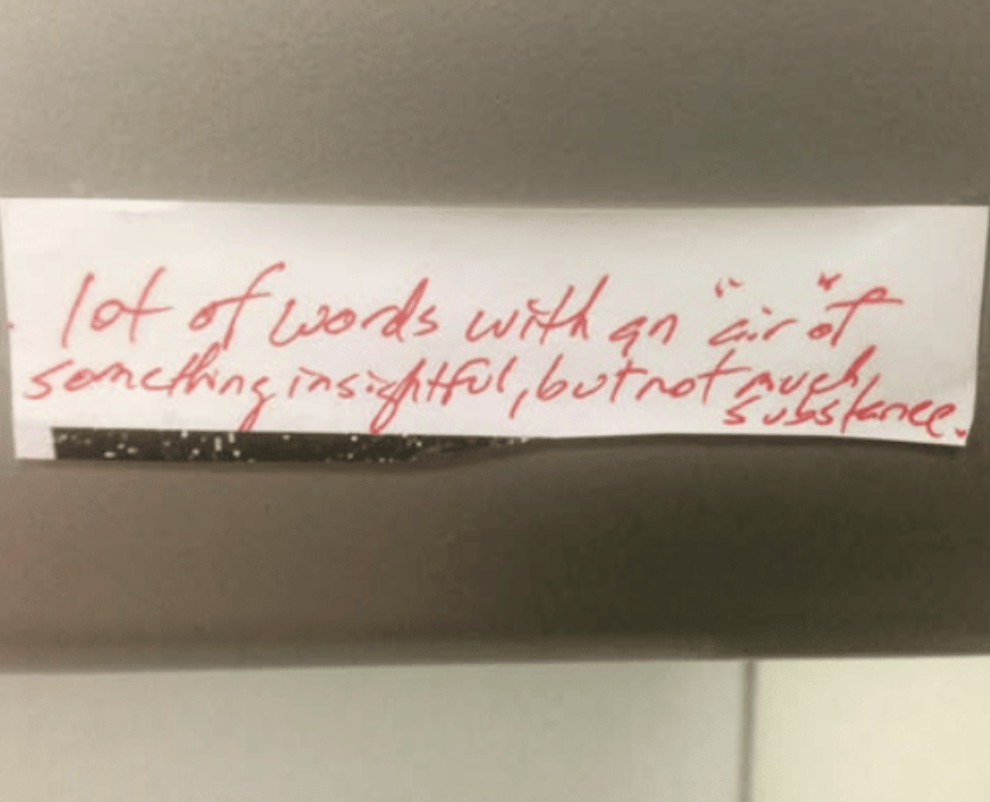 lot of words with an "air" of
something insightful, but not much
substance.